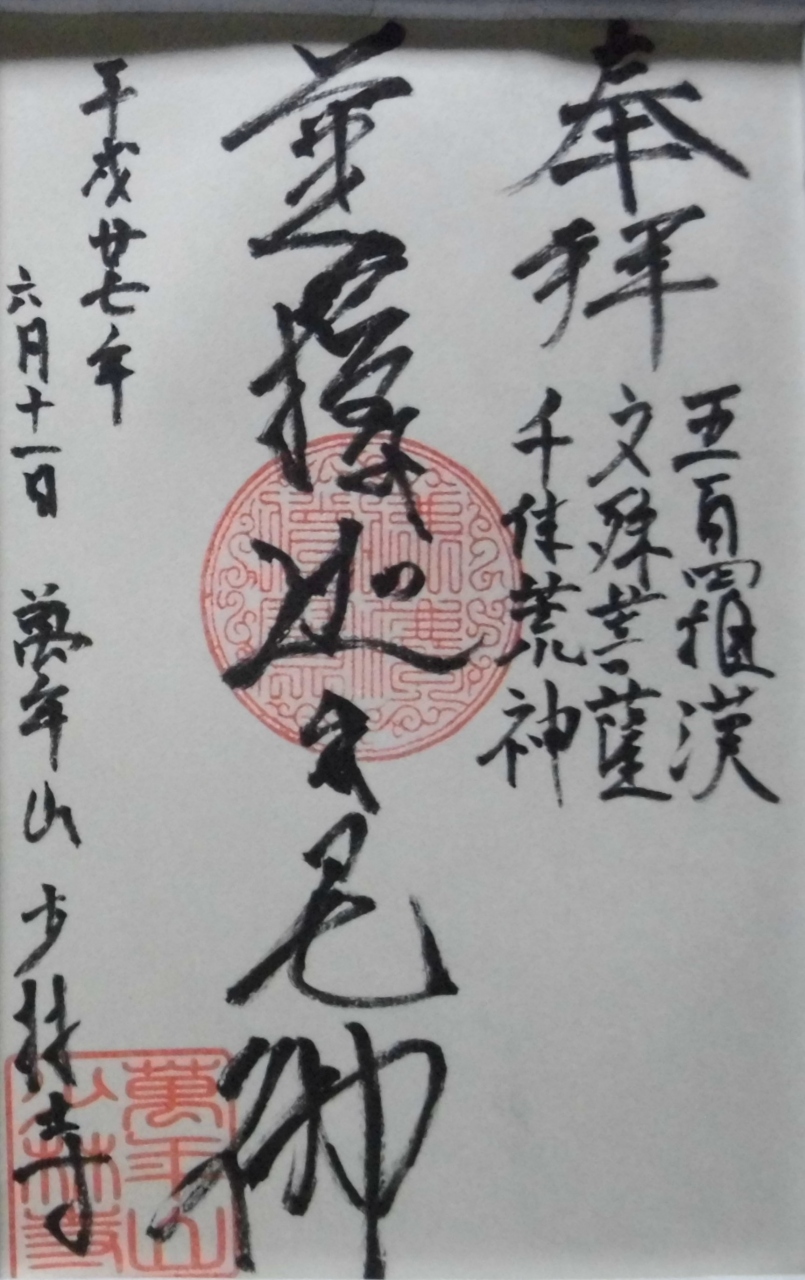 奉拝
五百羅漢
文殊菩薩
千体荒神
釋迦牟尼佛
平成廿七年
六月十一日 萬年山 少林寺
萬年山
少林寺